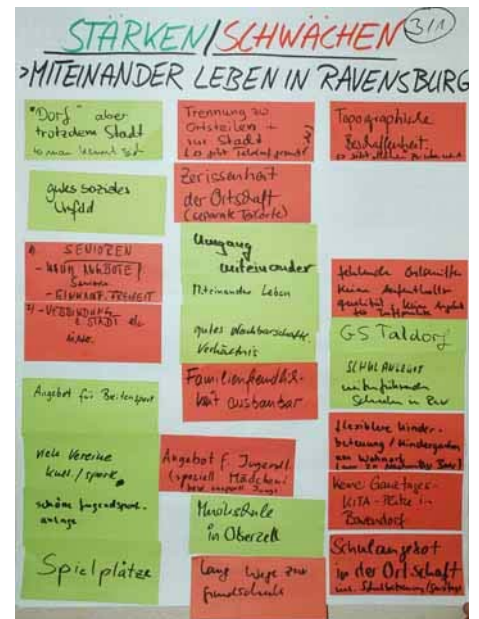 STÄRKEN/SCHWÄCHEN 3/1
>MITEINANDER LEBEN IN RAVENSBURG
"Dorf" aber
trotzdem Stadt
gutes soziales
Umfeld
SENIOREN
- ANGEBOTE
Senioren
- VERBINDUNG
Z STADT
Angebot für Breitensport
viele Vereine
kult./sport.
schöne Jugendsport-
anlage
Spielplätze
Trennung zu
Ortsteilen +
zur Stadt
Zerissenheit
der Ortschaft
(separate Teilorte)
Umgang
miteinander
Miteinander Leben
gutes Nachbarschafts-
Verhältnis
Familienfreundlich-
keit ausbaubar
Angebot f. Jugendl.
(speziell Mädchen
Musikschule
in Oberzell
lange Wege zur
Grundschule
Topographische
Beschaffenheit
fehlende Ortsmitte
keine Aufenthalts-
qualität
GS Taldorf
weiterführende
Schulen in
flexible Kinder-
betreuung / Kindergarten
am Wohnort
keine Ganztages-
KITA-Plätze in
Bavendorf
Schulangebot
in der Ortschaft